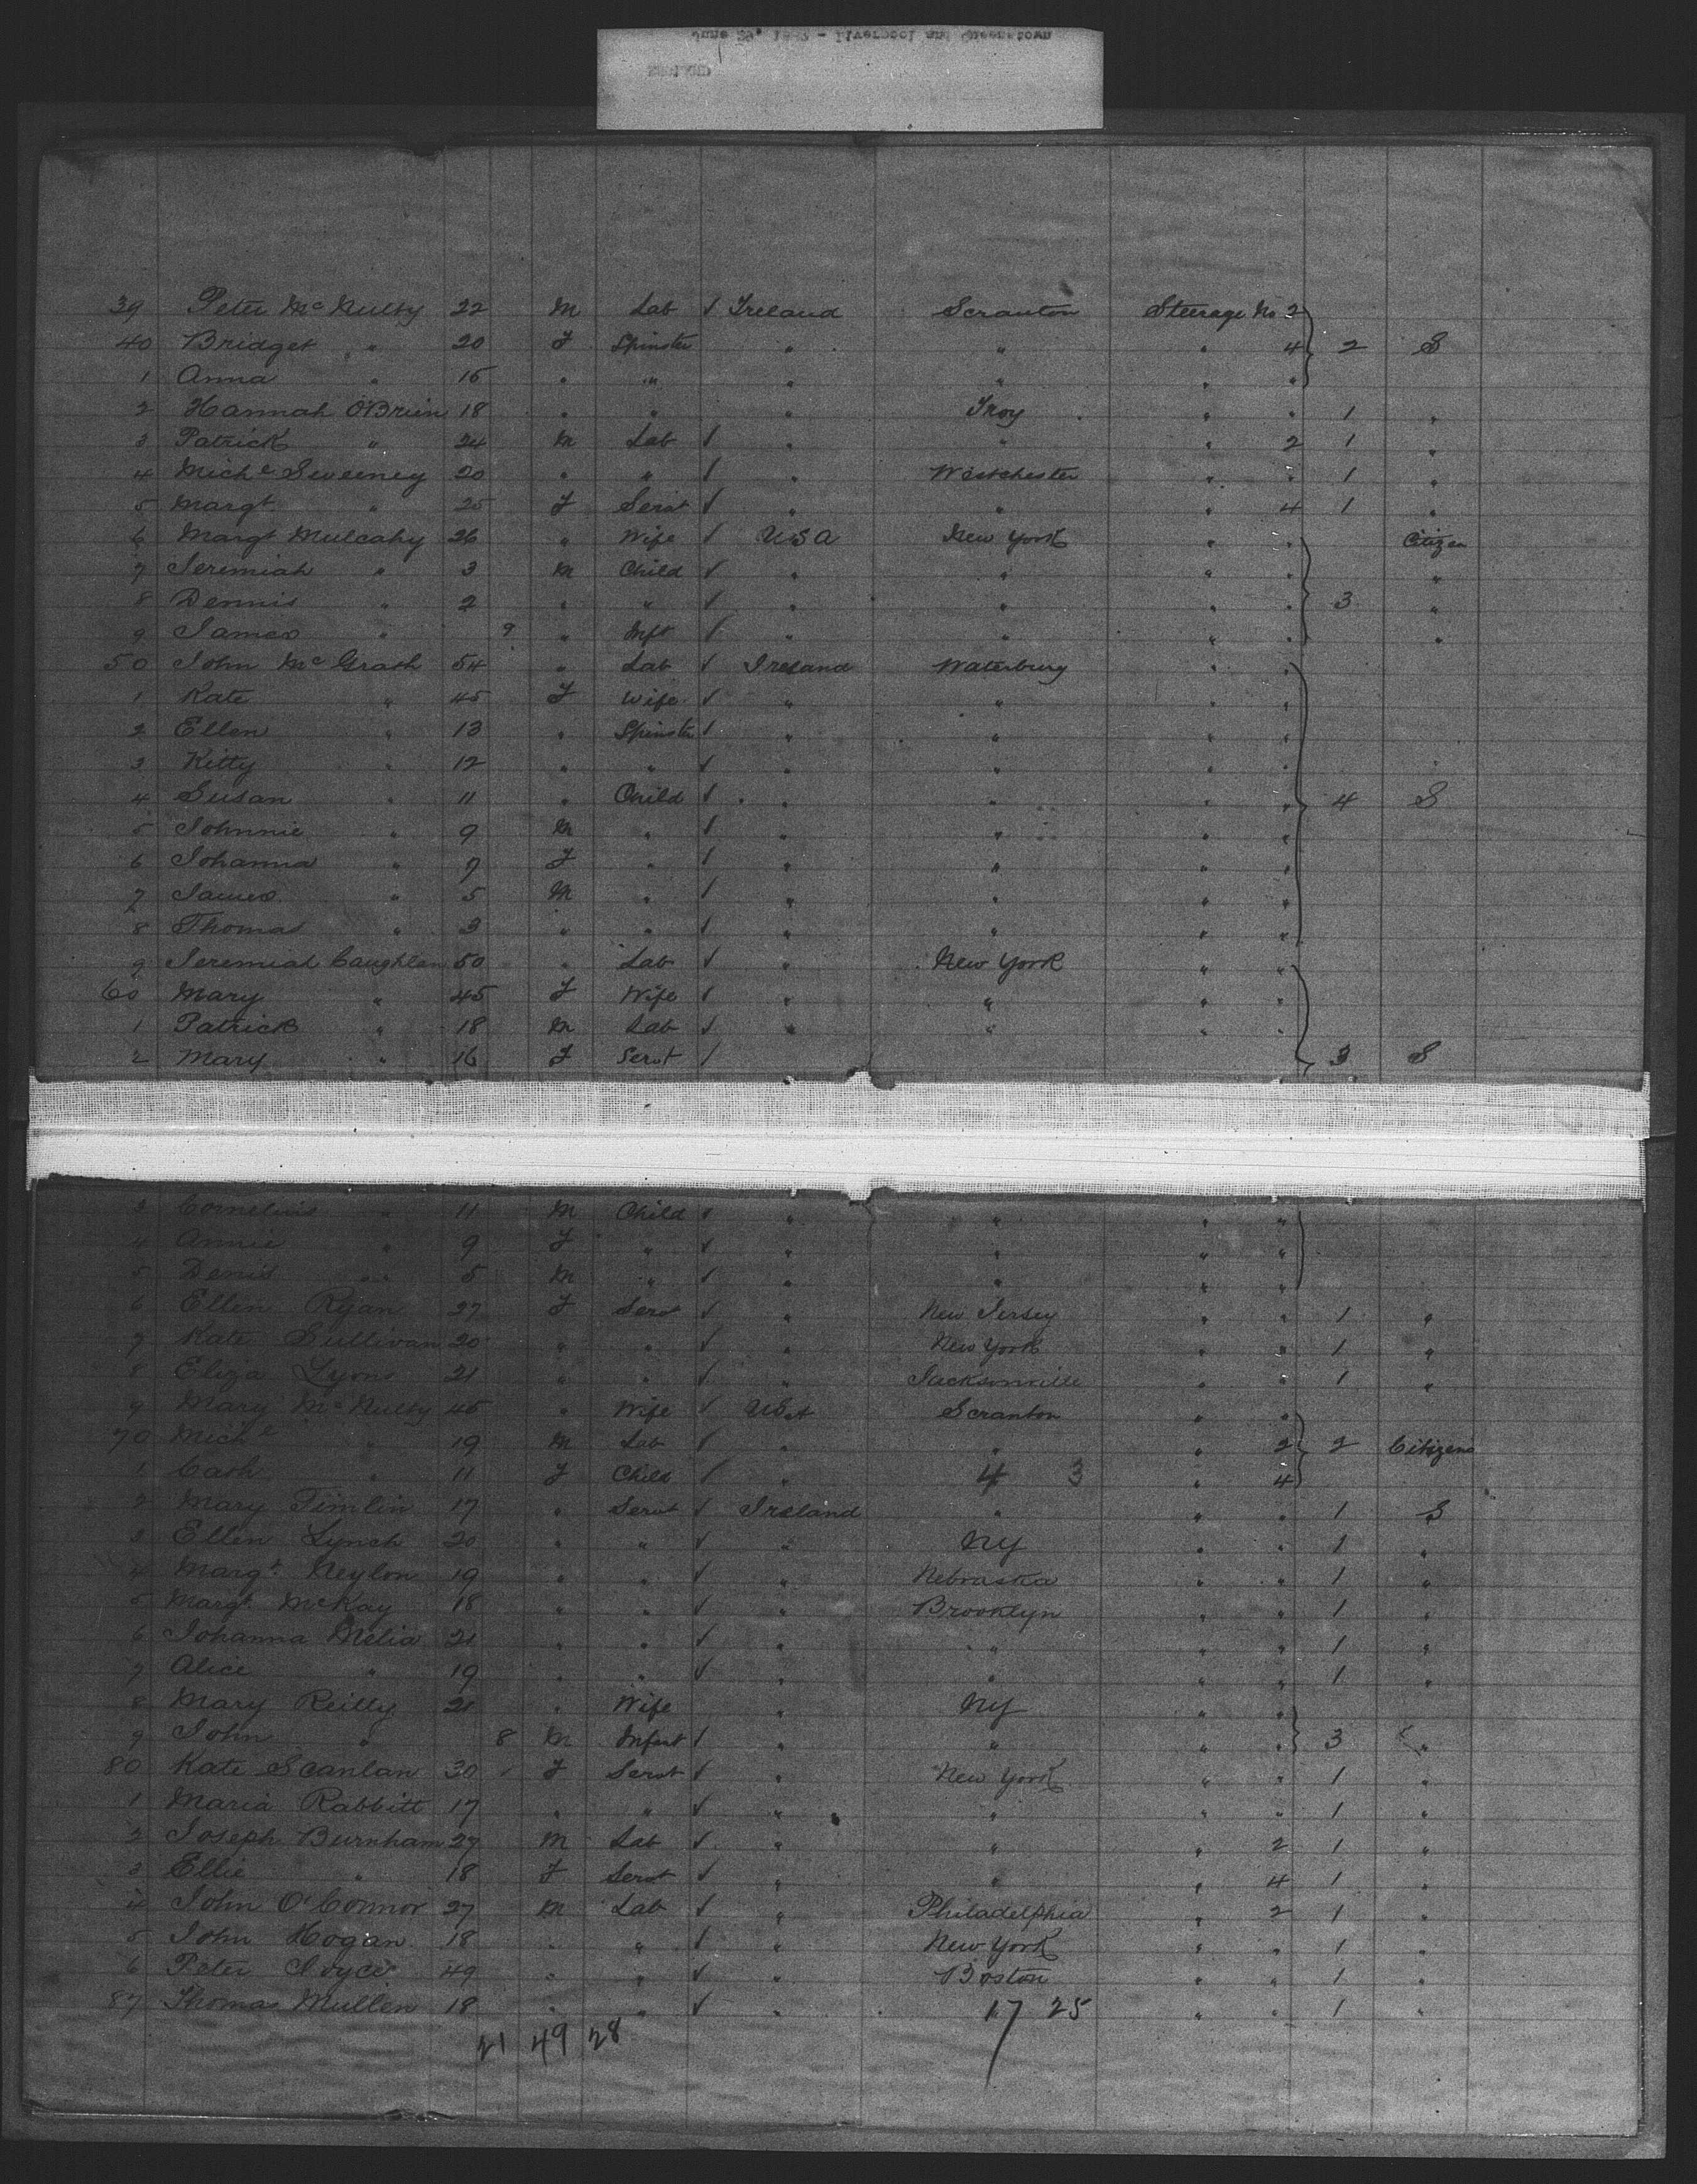 June 29, 1887 - Liverpool and Queenstown
39 Peter McNulty 22 M Lab √ Ireland Scranton Steerage No 2
40 Bridget " 20 F Spinster " " " 4 2 S
1 Anna " 15 " " " " " "
2 Hannah O'Brien 18 " " " Troy " " 1 "
3 Patrick " 24 M Lab √ " " " 2 1 "
4 Michl Sweeney 20 " " √ " Westchester " " 1 "
5 Margt " 25 F Servt √ " " " 4 1 "
6 Margt Mulcahy 26 " Wife √ USA New York " " Citizen
7 Jeremiah " 3 M Child √ " " " " "
8 Dennis " 2 " " √ " " " " 3 "
9 James " 9 " Inft √ " " " " "
50 John McGrath 54 " Lab √ Ireland Waterbury " "
1 Kate " 45 F Wife √ " " " "
2 Ellen " 13 " Spinster √ " " " "
3 Kitty " 12 " " √ " " " "
4 Susan " 11 " Child √ " " " " 4 S
5 Johnnie " 9 M " √ " " " "
6 Johanna " 7 F " √ " " " "
7 James " 5 M " √ " " " "
8 Thomas " 3 " " √ " " " "
9 Jeremiah Caughlan 50 " Lab √ " New York " "
60 Mary " 45 F Wife √ " " " "
1 Patrick " 18 M Lab √ " " " "
2 Mary " 16 F Servt √ 3 S
3 Cornelius " 11 M Child √ " " " "
4 Annie " 9 F " √ " " " "
5 Denis " 5 M " √ " " " "
6 Ellen Ryan 27 F Servt √ " New Jersey " " 1 "
7 Kate Sullivan 20 " " √ " New York " " 1 "
8 Eliza Lyons 21 " " √ " Jacksonville " " 1 "
9 Mary McNulty 45 " Wife √ USA Scranton " "
70 Michl " 19 M Lab √ " " " 2 2 Citizens
1 Cath " 11 F Child √ " 4 3 " 4
2 Mary Timlin 17 " Servt √ Ireland " " " 1 S
3 Ellen Lynch 20 " " √ " NY " " 1 "
4 Margt Neylon 19 " " √ " Nebraska " " 1 "
5 Margt McKay 18 " " √ " Brooklyn " " 1 "
6 Johanna Melia 21 " " √ " " " " 1 "
7 Alice " 19 " " √ " " " " 1 "
8 Mary Reilly 21 " Wife " NY " "
9 John " 8 M Infant √ " " " " 3 "
80 Kate Scanlan 30 F Servt √ " New York " " 1 "
1 Maria Rabbitt 17 " " √ " " " " 1 "
2 Joseph Burnham 27 M Lab √ " " " 2 1 "
3 Ellie " 18 F Servt √ " " " 4 1 "
4 John O'Connor 27 M Lab √ " Philadelphia " 2 1 "
5 John Hogan 18 " " √ " New York " " 1 "
6 Peter Joyce 49 " " √ " Boston " " 1 "
87 Thomas Mullen 18 " " √ " 17 25 " " 1 "
21 49 28